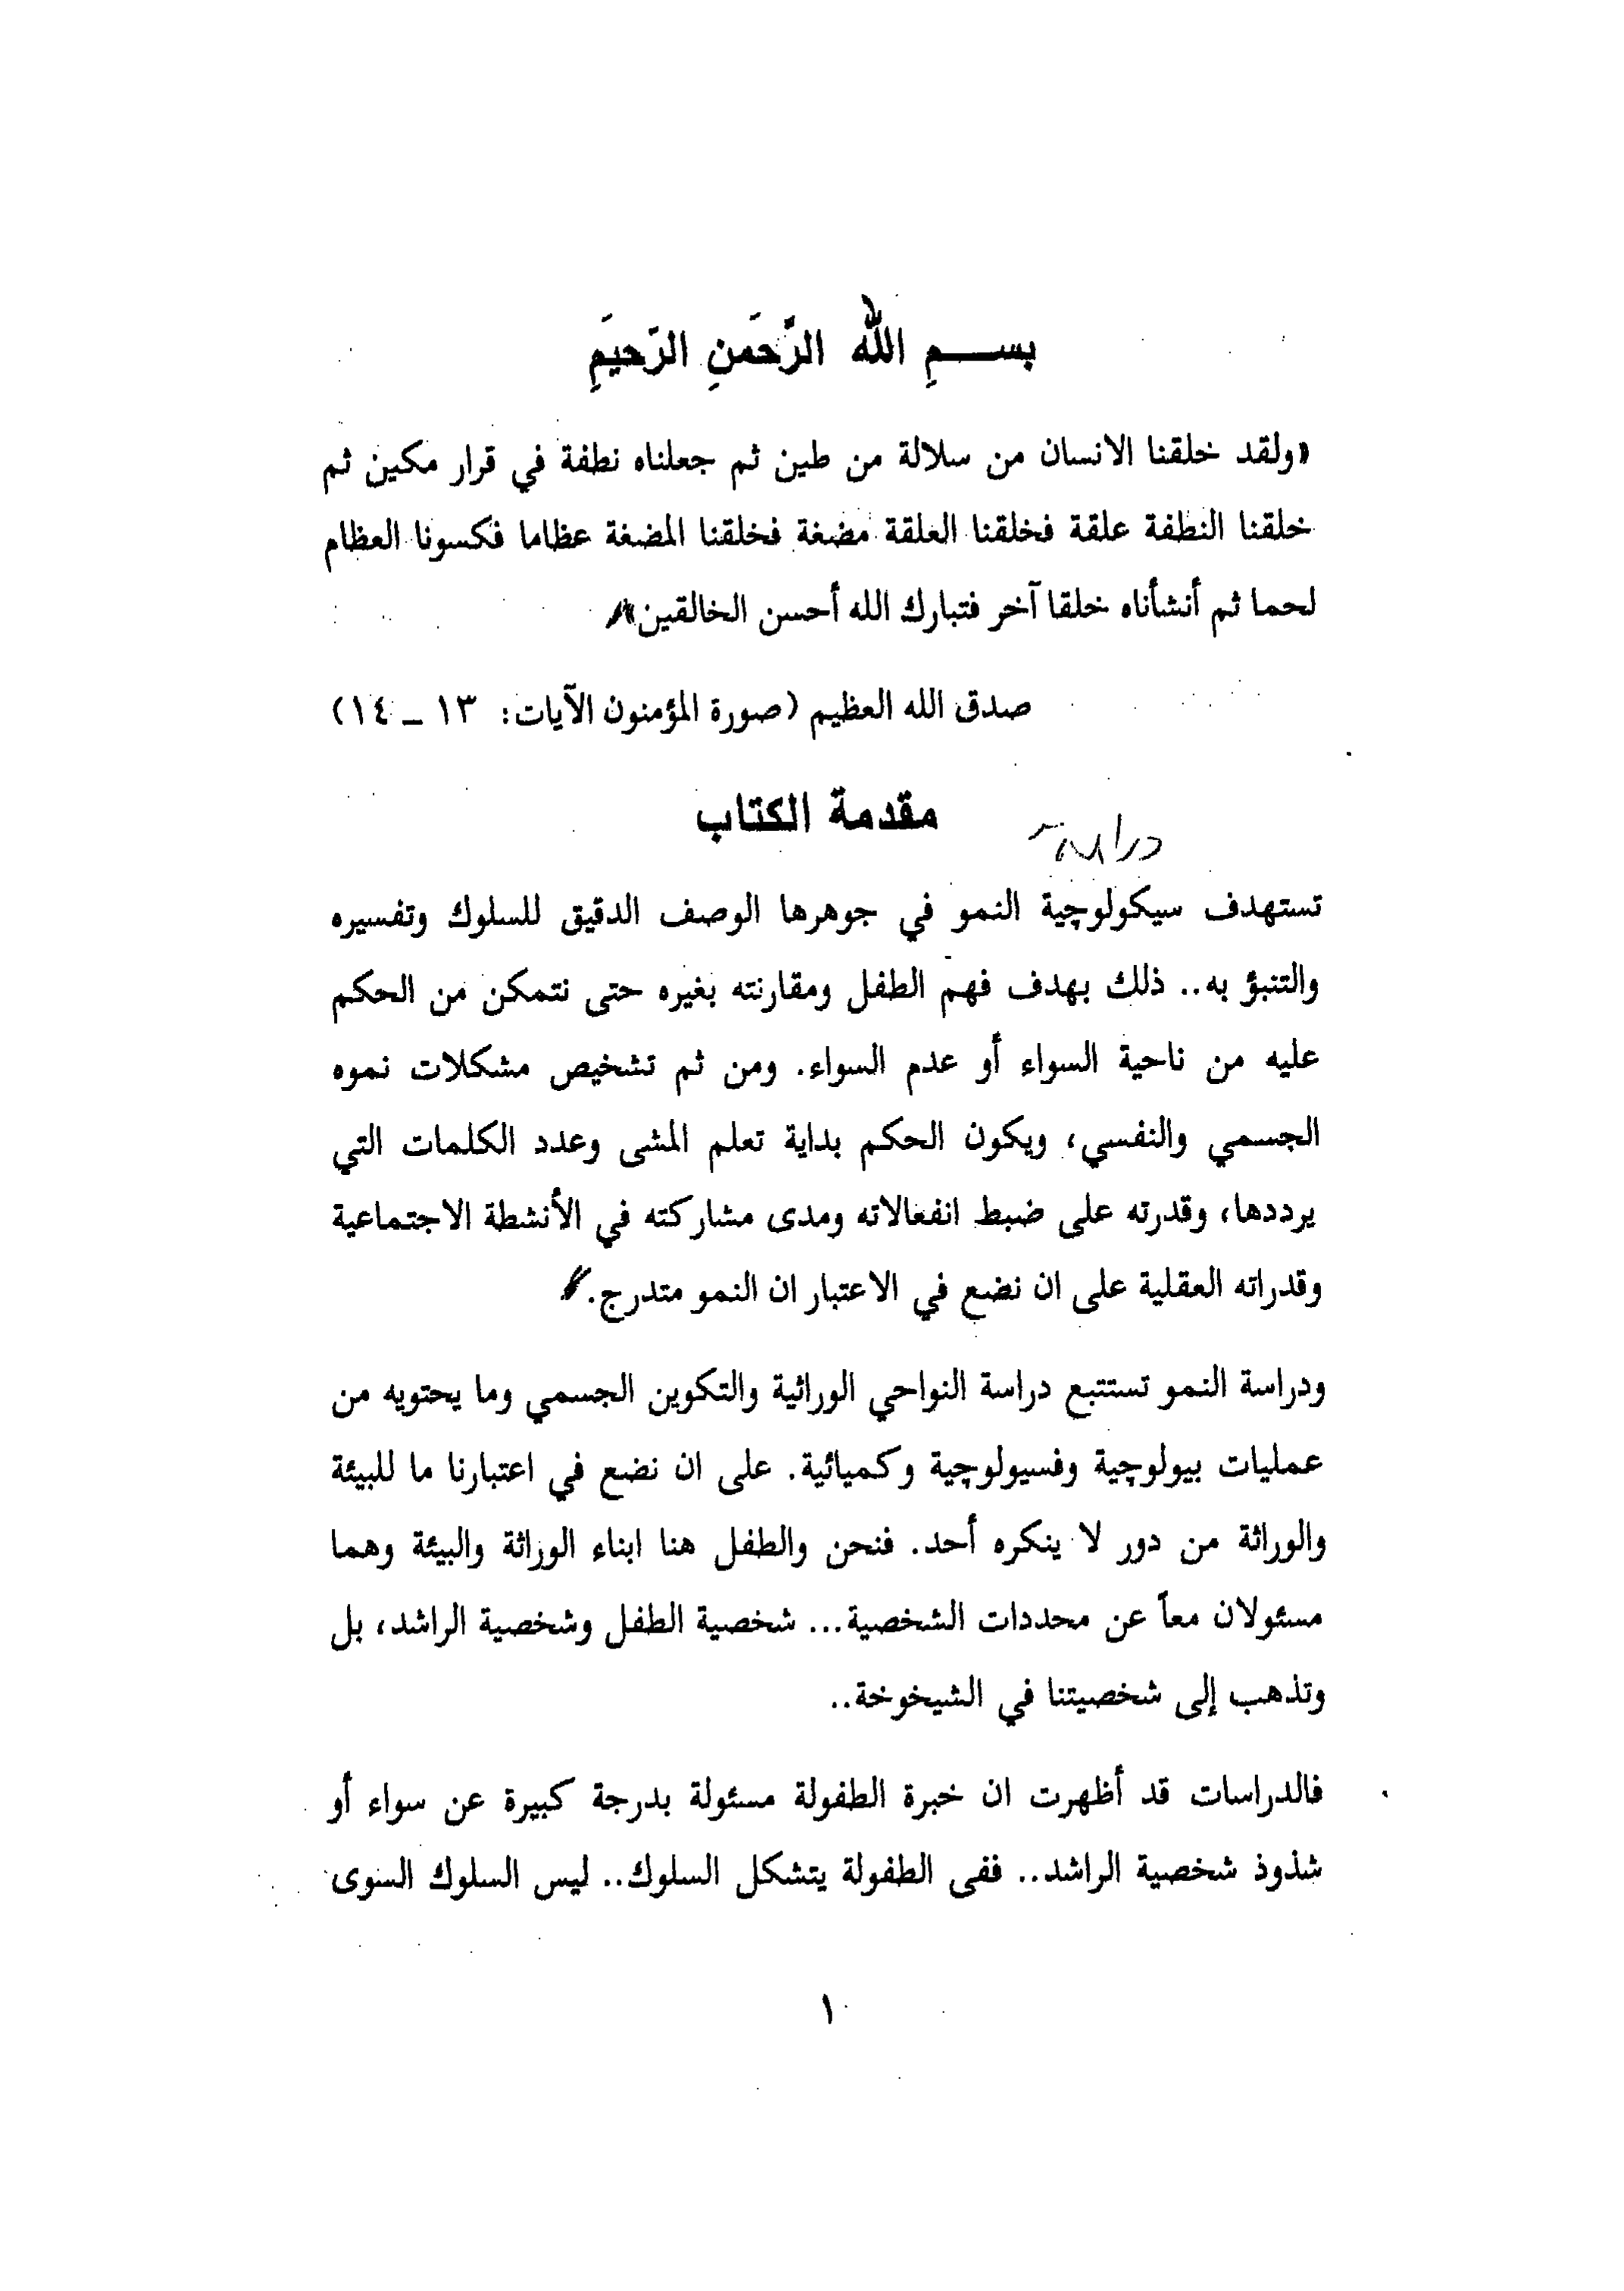 بســـم الله الرَّحمَنِ الرّحيمِ
«ولقد خلقنا الانسان من سلالة من طين ثم جعلناه نطفة في قرار مكين ثم
خلقنا النطفة علقة فخلقنا العلقة مضغة فخلقنا المضغة عظاما فكسونا العظام
لحما ثم أنشأناه خلقا آخر فتبارك الله أحسن الخالقين»
صدق الله العظيم (صورة المؤمنون الآيات: ١٣ ــ ١٤)
مقدمة الكتاب
دراسة
تستهدف سيكولوچية النمو في جوهرها الوصف الدقيق للسلوك وتفسيره
والتنبؤ به.. ذلك بهدف فهم الطفل ومقارنته بغيره حتى نتمكن من الحكم
عليه من ناحية السواء أو عدم السواء. ومن ثم تشخيص مشكلات نموه
الجسمي والنفسي، ويكون الحكم بداية تعلم المشى وعدد الكلمات التي
يرددها، وقدرته على ضبط انفعالاته ومدى مشاركته في الأنشطة الاجتماعية
وقدراته العقلية على ان نضع في الاعتبار ان النمو متدرج.
ودراسة النمو تستتبع دراسة النواحي الوراثية والتكوين الجسمي وما يحتويه من
عمليات بيولوچية وفسيولوچية وكميائية. على ان نضع في اعتبارنا ما للبيئة
والوراثة من دور لا ينكره أحد. فنحن والطفل هنا ابناء الوراثة والبيئة وهما
مسئولان معاً عن محددات الشخصية... شخصية الطفل وشخصية الراشد، بل
وتذهب إلى شخصيتنا في الشيخوخة..
فالدراسات قد أظهرت ان خبرة الطفولة مسئولة بدرجة كبيرة عن سواء أو
شذوذ شخصية الراشد.. ففى الطفولة يتشكل السلوك.. ليس السلوك السوى
١